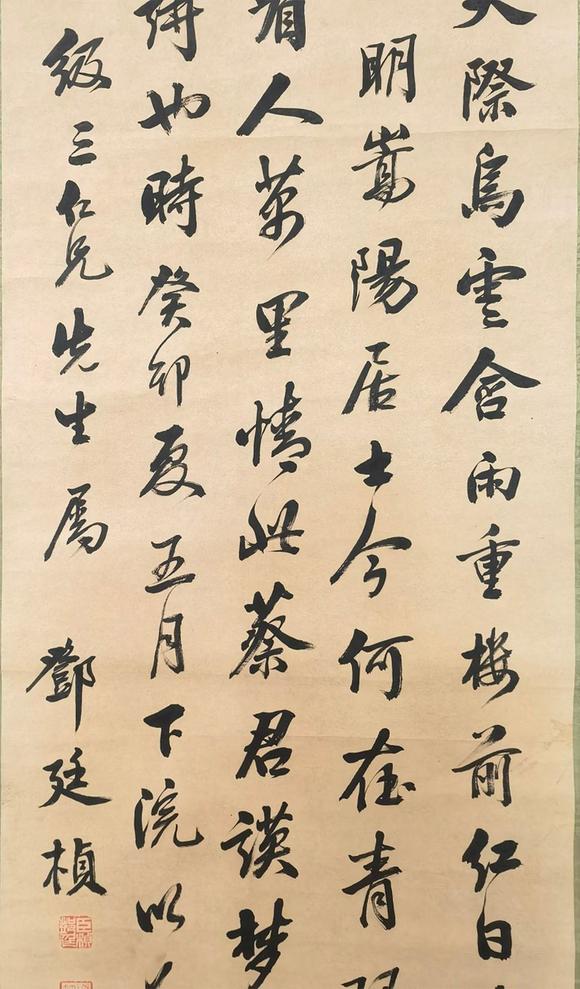 天際烏雲含雨重樓前紅日
明嵩陽居士今何在青
人萬里情此蔡君謨夢
也時癸卯夏五月下浣以
級三仁兄先生屬 鄧廷楨